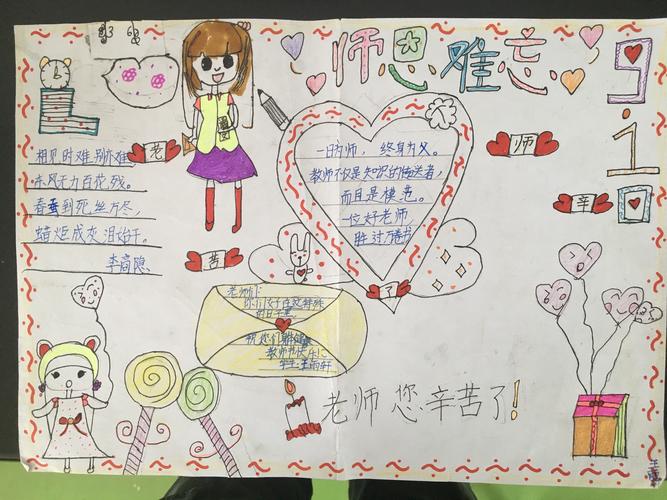 师恩难忘
9
1
0
相见时难别亦难
东风无力百花残。
春蚕到死丝方尽,
蜡炬成灰泪始干。
李商隐
老
师
辛
苦
了
一日为师,终身为父。
教师不仅是知识的传送者,
而且是模范。
一位好老师,
胜过万卷书
老师们:
你们好在这特殊
的日子里
祝您们
教师节快乐!
老师您辛苦了!